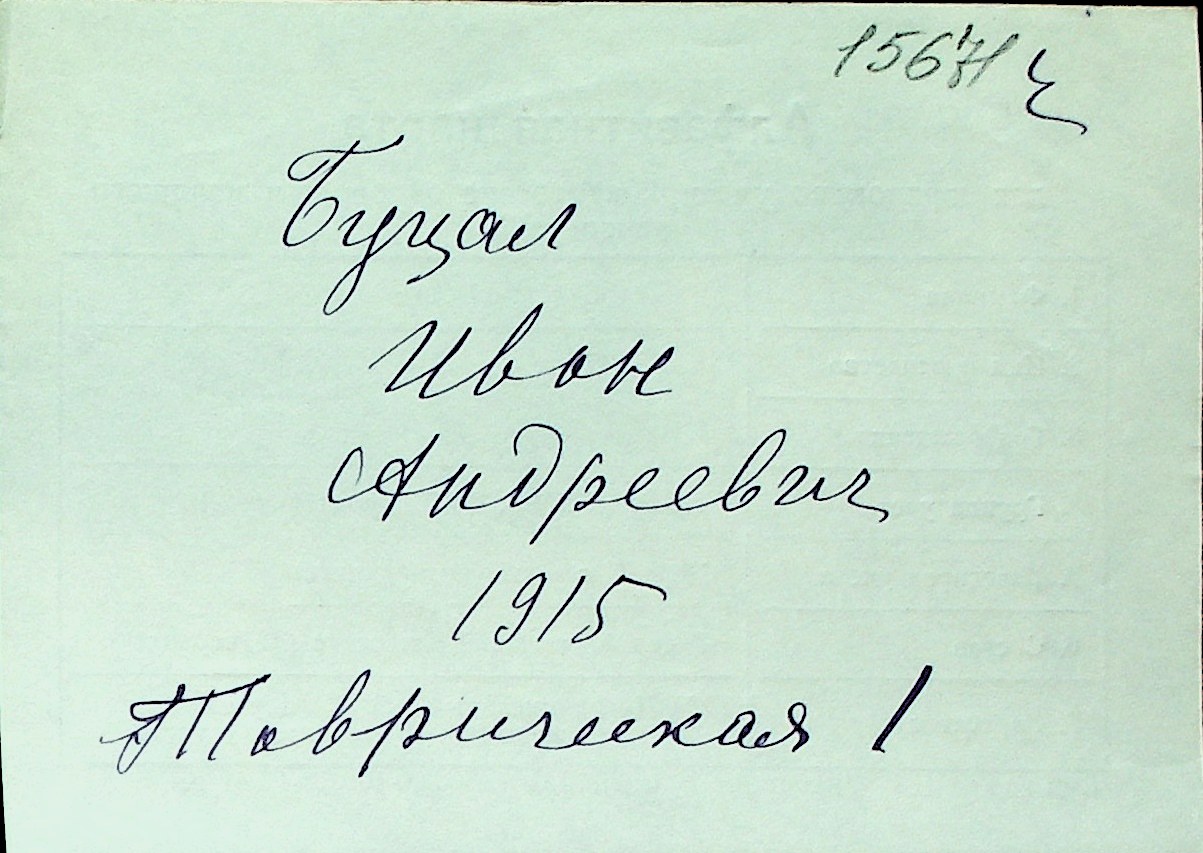 15671
Буцал
Иван
Андреевич
1915
Таврическая 1